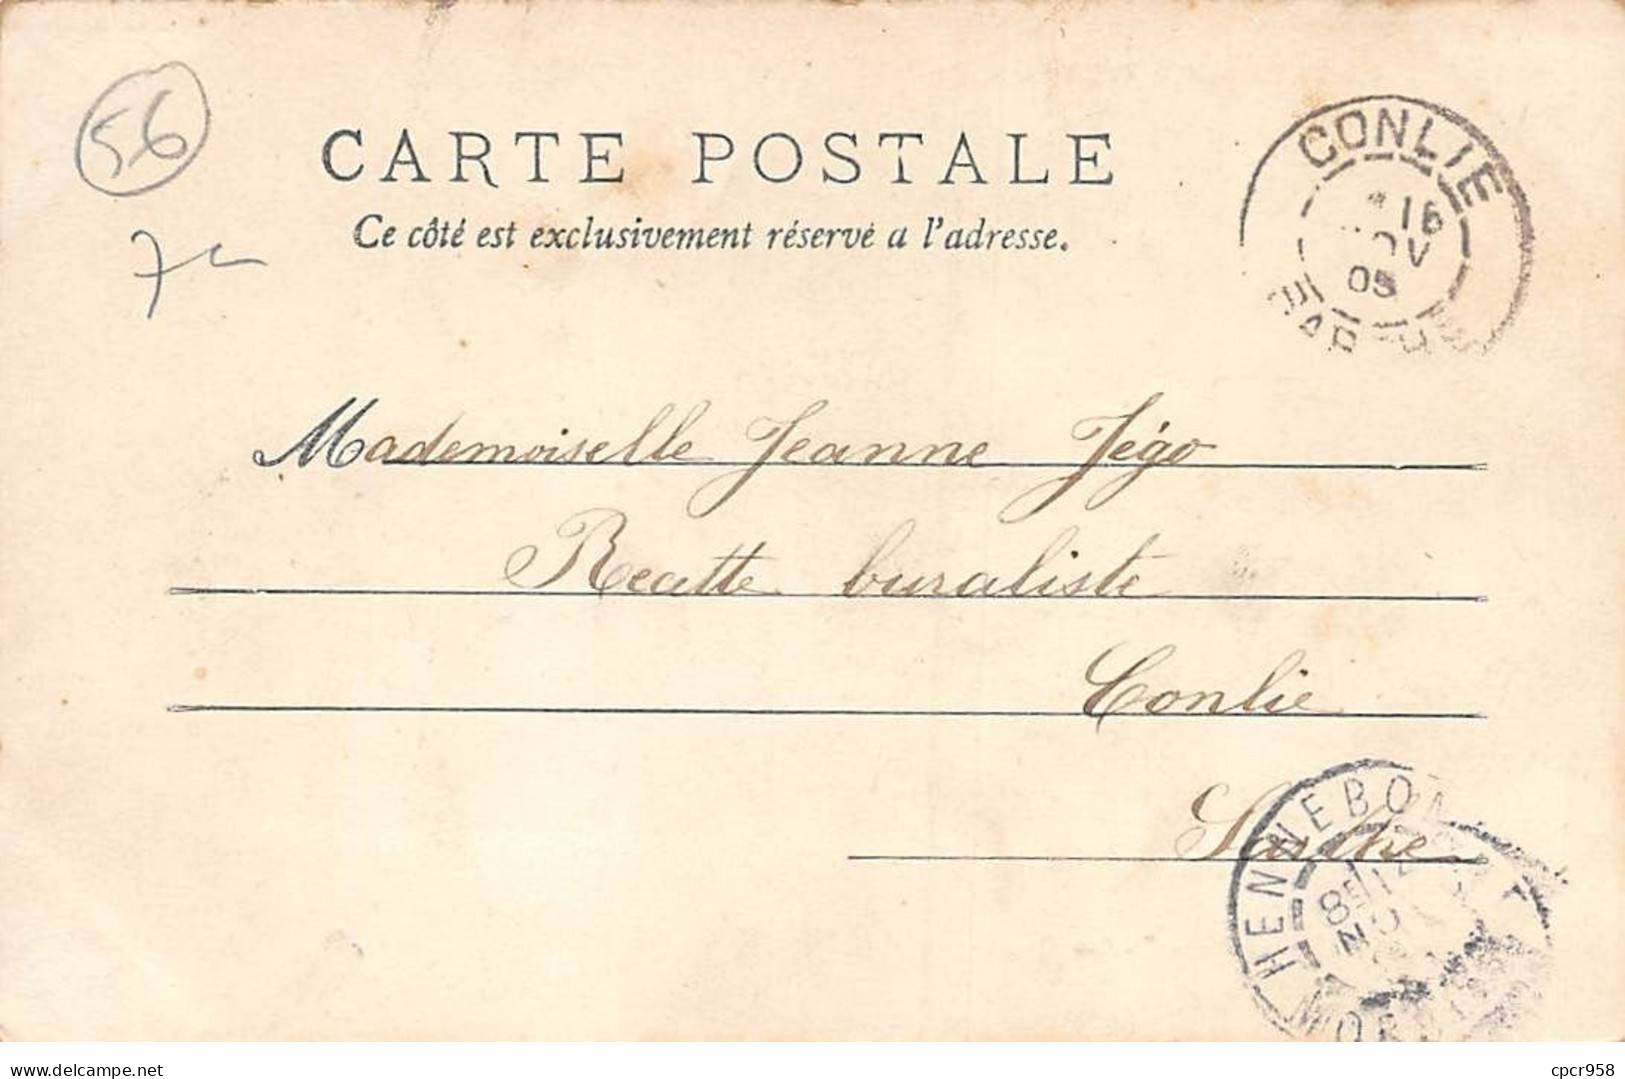 56
CARTE POSTALE
Ce côté est exclusivement réservé a l'adresse.
CONLIE
16
05
Mademoiselle Jeanne Jégo
Recette buraliste
Conlie
Sarthe
HENNEBONT
cpcr958